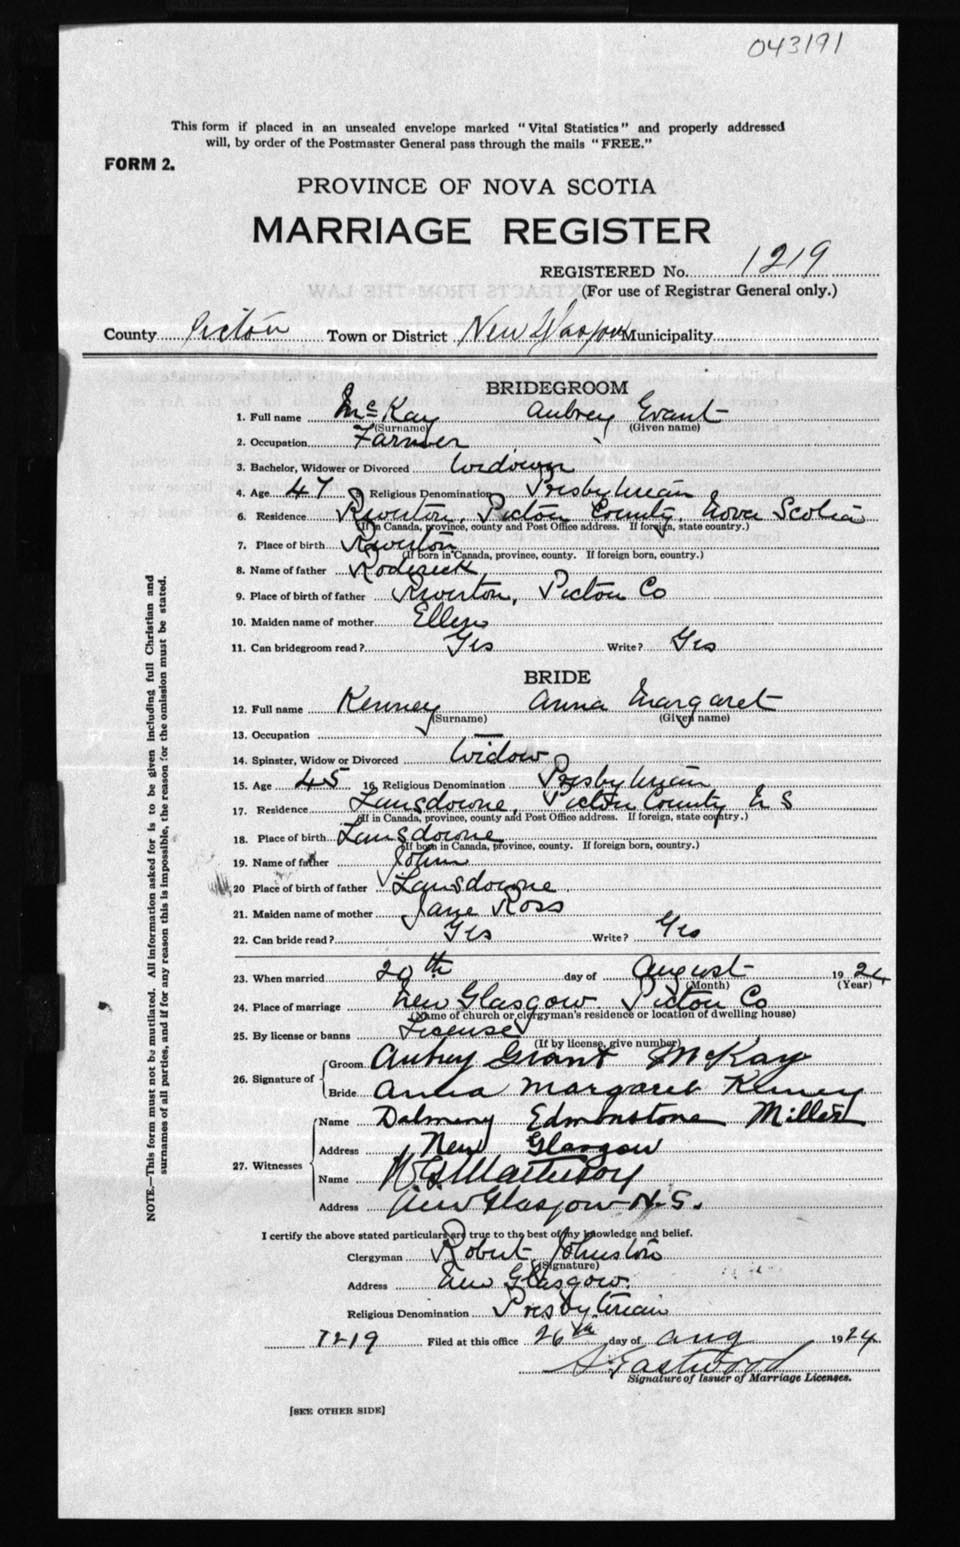 043191
This form if placed in an unsealed envelope marked "Vital Statistics" and properly addressed
will, by order of the Postmaster General pass through the mails "FREE."
FORM 2.
PROVINCE OF NOVA SCOTIA
MARRIAGE REGISTER
REGISTERED No. 1219
(For use of Registrar General only.)
County Picton Town or District New Glasgow Municipality
BRIDEGROOM
1. Full name McKay Aubrey Grant
(Surname) (Given name)
2. Occupation Farmer
3. Bachelor, Widower or Divorced Widower
4. Age 47 5. Religious Denomination Presbyterian
6. Residence Riverton, Picton County, Nova Scotia
(If in Canada, province, county and Post Office address. If foreign, state country.)
7. Place of birth Riverton
(If born in Canada, province, county. If foreign born, country.)
8. Name of father Roderick
9. Place of birth of father Riverton, Picton Co
10. Maiden name of mother Ellen
11. Can bridegroom read? Yes Write? Yes
BRIDE
12. Full name Kenney Anna Margaret
(Surname) (Given name)
13. Occupation —
14. Spinster, Widow or Divorced Widow
15. Age 45 16. Religious Denomination Presbyterian
17. Residence Lansdowne, Picton County N S
(If in Canada, province, county and Post Office address. If foreign, state country.)
18. Place of birth Lansdowne
(If born in Canada, province, county. If foreign born, country.)
19. Name of father John
20 Place of birth of father Lansdowne
21. Maiden name of mother Jane Ross
22. Can bride read? Yes Write? Yes
23. When married 20th day of August 1924
(Month) (Year)
24. Place of marriage New Glasgow Picton Co
(Name of church or clergyman's residence or location of dwelling house)
25. By license or banns License
(If by license, give number)
26. Signature of Groom Aubrey Grant McKay
Bride Anna Margaret Kenney
27. Witnesses Name Dalmeny Edmonstone Miller
Address New Glasgow
Name
Address New Glasgow N.S.
I certify the above stated particulars are true to the best of my knowledge and belief.
Clergyman Robert Johnston
(Signature)
Address New Glasgow.
Religious Denomination Presbyterian
1219 Filed at this office 26th day of Aug 1924
Eastwood
Signature of Issuer of Marriage Licenses.
[SEE OTHER SIDE]
NOTE.—This form must not be mutilated. All information asked for is to be given including full Christian and
surnames of all parties, and if for any reason this is impossible, the reason for the omission must be stated.